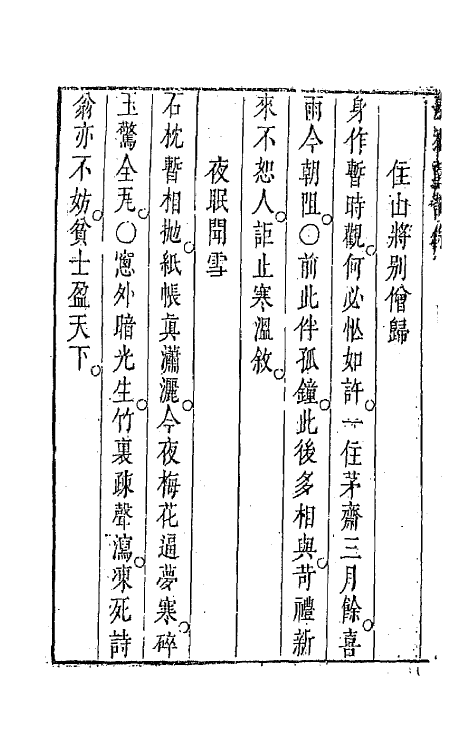 住山將别僧歸
身作暫時觀何必怭如許一住茅齋三月餘喜
雨今朝阻〇前此伴孤鐘此後多相與苛禮新
來不恕人詎止寒溫敘
夜眠聞雪
石枕暫相拋紙帳真瀟灑今夜梅花逼夢寒碎
玉驚全瓦〇窻外暗光生竹裏疎聲瀉凍死詩
翁亦不妨貧士盈天下